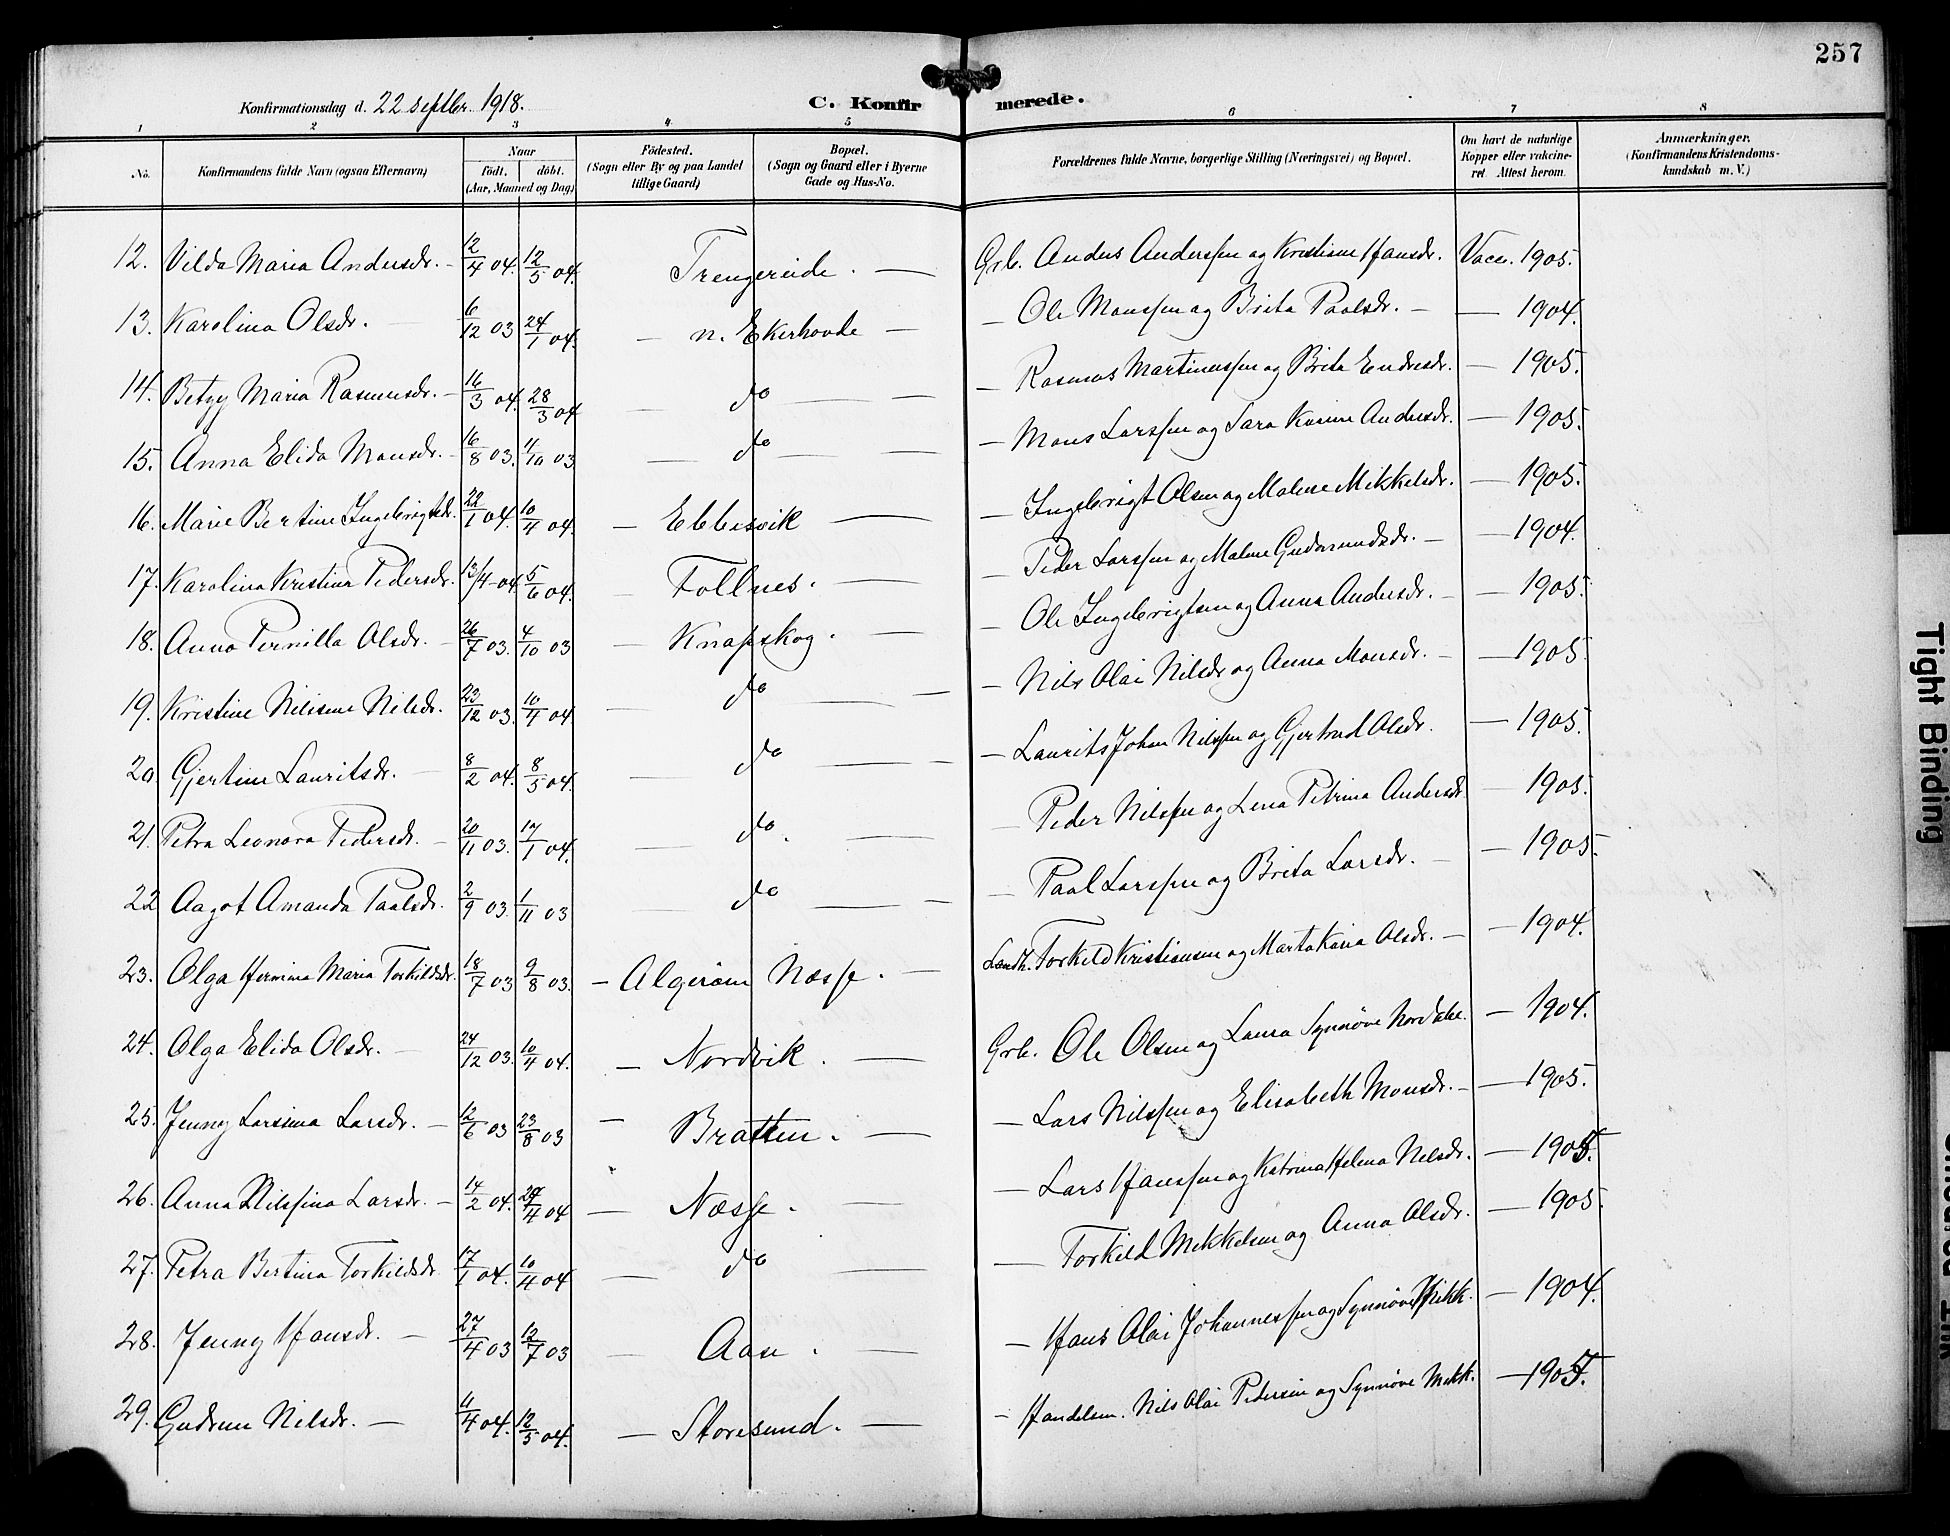 257
Konfirmationsdag d. 22 septbr. 1918.
C. Konfirmerede.
1 2 3 4 5 6 7 8
No.
Konfirmandens fulde Navn (ogsaa Efternavn)
Naar
födt. döbt.
(Aar, Maaned og Dag)
Födested.
(Sogn eller By og paa Landet
tillige Gaard)
Bopæl.
(Sogn og Gaard eller i Byerne
Gade og Hus-No.
Forældrenes fulde Navne, borgerlige Stilling (Næringsvei) og Bopæl.
Om havt de naturlige
Kopper eller vakcine-
ret Attest herom.
Anmærkninger.
(Konfirmandens Kristendoms-
kundskab m. V.)
12. Vilda Maria Andersdr. — 12/4 04. 12/5 04. Trengereide. — Grb. Anders Anderssen og Kristiane Hansdr. Vacc. 1905.
13. Karolina Olsdr. — 6/12 03 24/1 04. — n. Ekerhovde — — Ole Monssen og Brita Paalsdr. — — 1904.
14. Betzy Maria Rasmusdr. — 16/3 04. 28/3 04 — do — — — Rasmus Martinussen og Brita Endresdr. — 1905.
15. Anna Elida Monsdr. — 16/8 03. 4/10 03 — do — — — Mons Larssen og Sara Karine Andersdr. — 1905.
16. Marie Bertine Ingebrigtsdr. 22/1 04. 10/4 04. — Ebbesvik — — Ingebrigt Olsen og Malene Mikkelsdr. — 1905.
17. Karolina Kristina Pedersdr. 13/4-04 5/6 04. — Follnes. — — Peder Larssen og Malene Gudmundsdr. — — 1904.
18. Anna Pernilla Olsdr. — 26/7 03. 4/10 03 — Knapskog. — — Ole Ingebrigtsen og Anna Andersdr. — — 1905.
19. Kristine Nilsine Nilsdr. 23/12 03. 10/4 04 — do — — — Nils Olai Nilsdr og Anna Monsdr. — — 1905.
20. Gjertine Lauritsdr. — 8/2 04. 8/5 04. — do — — — Laurits Johan Nilssen og Gjertrud Olsdr. — 1905.
21. Petra Leonora Pedersdr. — 20/11 03. 17/1 04. — do. — — Peder Nilssen og Lena Petrina Andersdr — 1905.
22 Aagot Amanda Paalsdr. 2/9 03. 1/11 03 — do — — — Paal Larssen og Brita Larsdr. — — 1905.
23. Olga Hermina Maria Torkildsdr. 18/7 03 9/8 03. — Algerøen Næsse. — Landh. Torkild Kristiansen og Marta Karia Olsdr. — — 1904.
24. Olga Elida Olsdr. — 24/12 03. 10/4 04. — Nordvik. — Grb. Ole Olsen og Laura Synnøve — 1904.
25. Jenny Larsina Larsdr. — 12/6 03 23/8 03 — Bratten. — — Lars Nilssen og Elisabeth Monsdr. — — 1905.
26. Anna Nilssina Larsdr. — 14/2 04. 24/4 04 — Næsse. — — Lars Hanssen og Katrina Helena Nilsdr. —
27. Petra Bertina Torkildsdr 17/1 04. 10/4 04 — do — — Torkild Mikkelsen og Anna Olsdr. — 1905.
28. Jenny Hansdr. — 27/4 03 12/7 03 — Aase. — — Hans Olai Johannessen og Synnøve Mikk. — 1904.
29. Gudrun Nilsdr. — 11/4 04. 12/5 04. — Storesund. — — Handelsm. Nils Olai Pedersen og Synnøve Mikk. — 1905.
Tight Binding